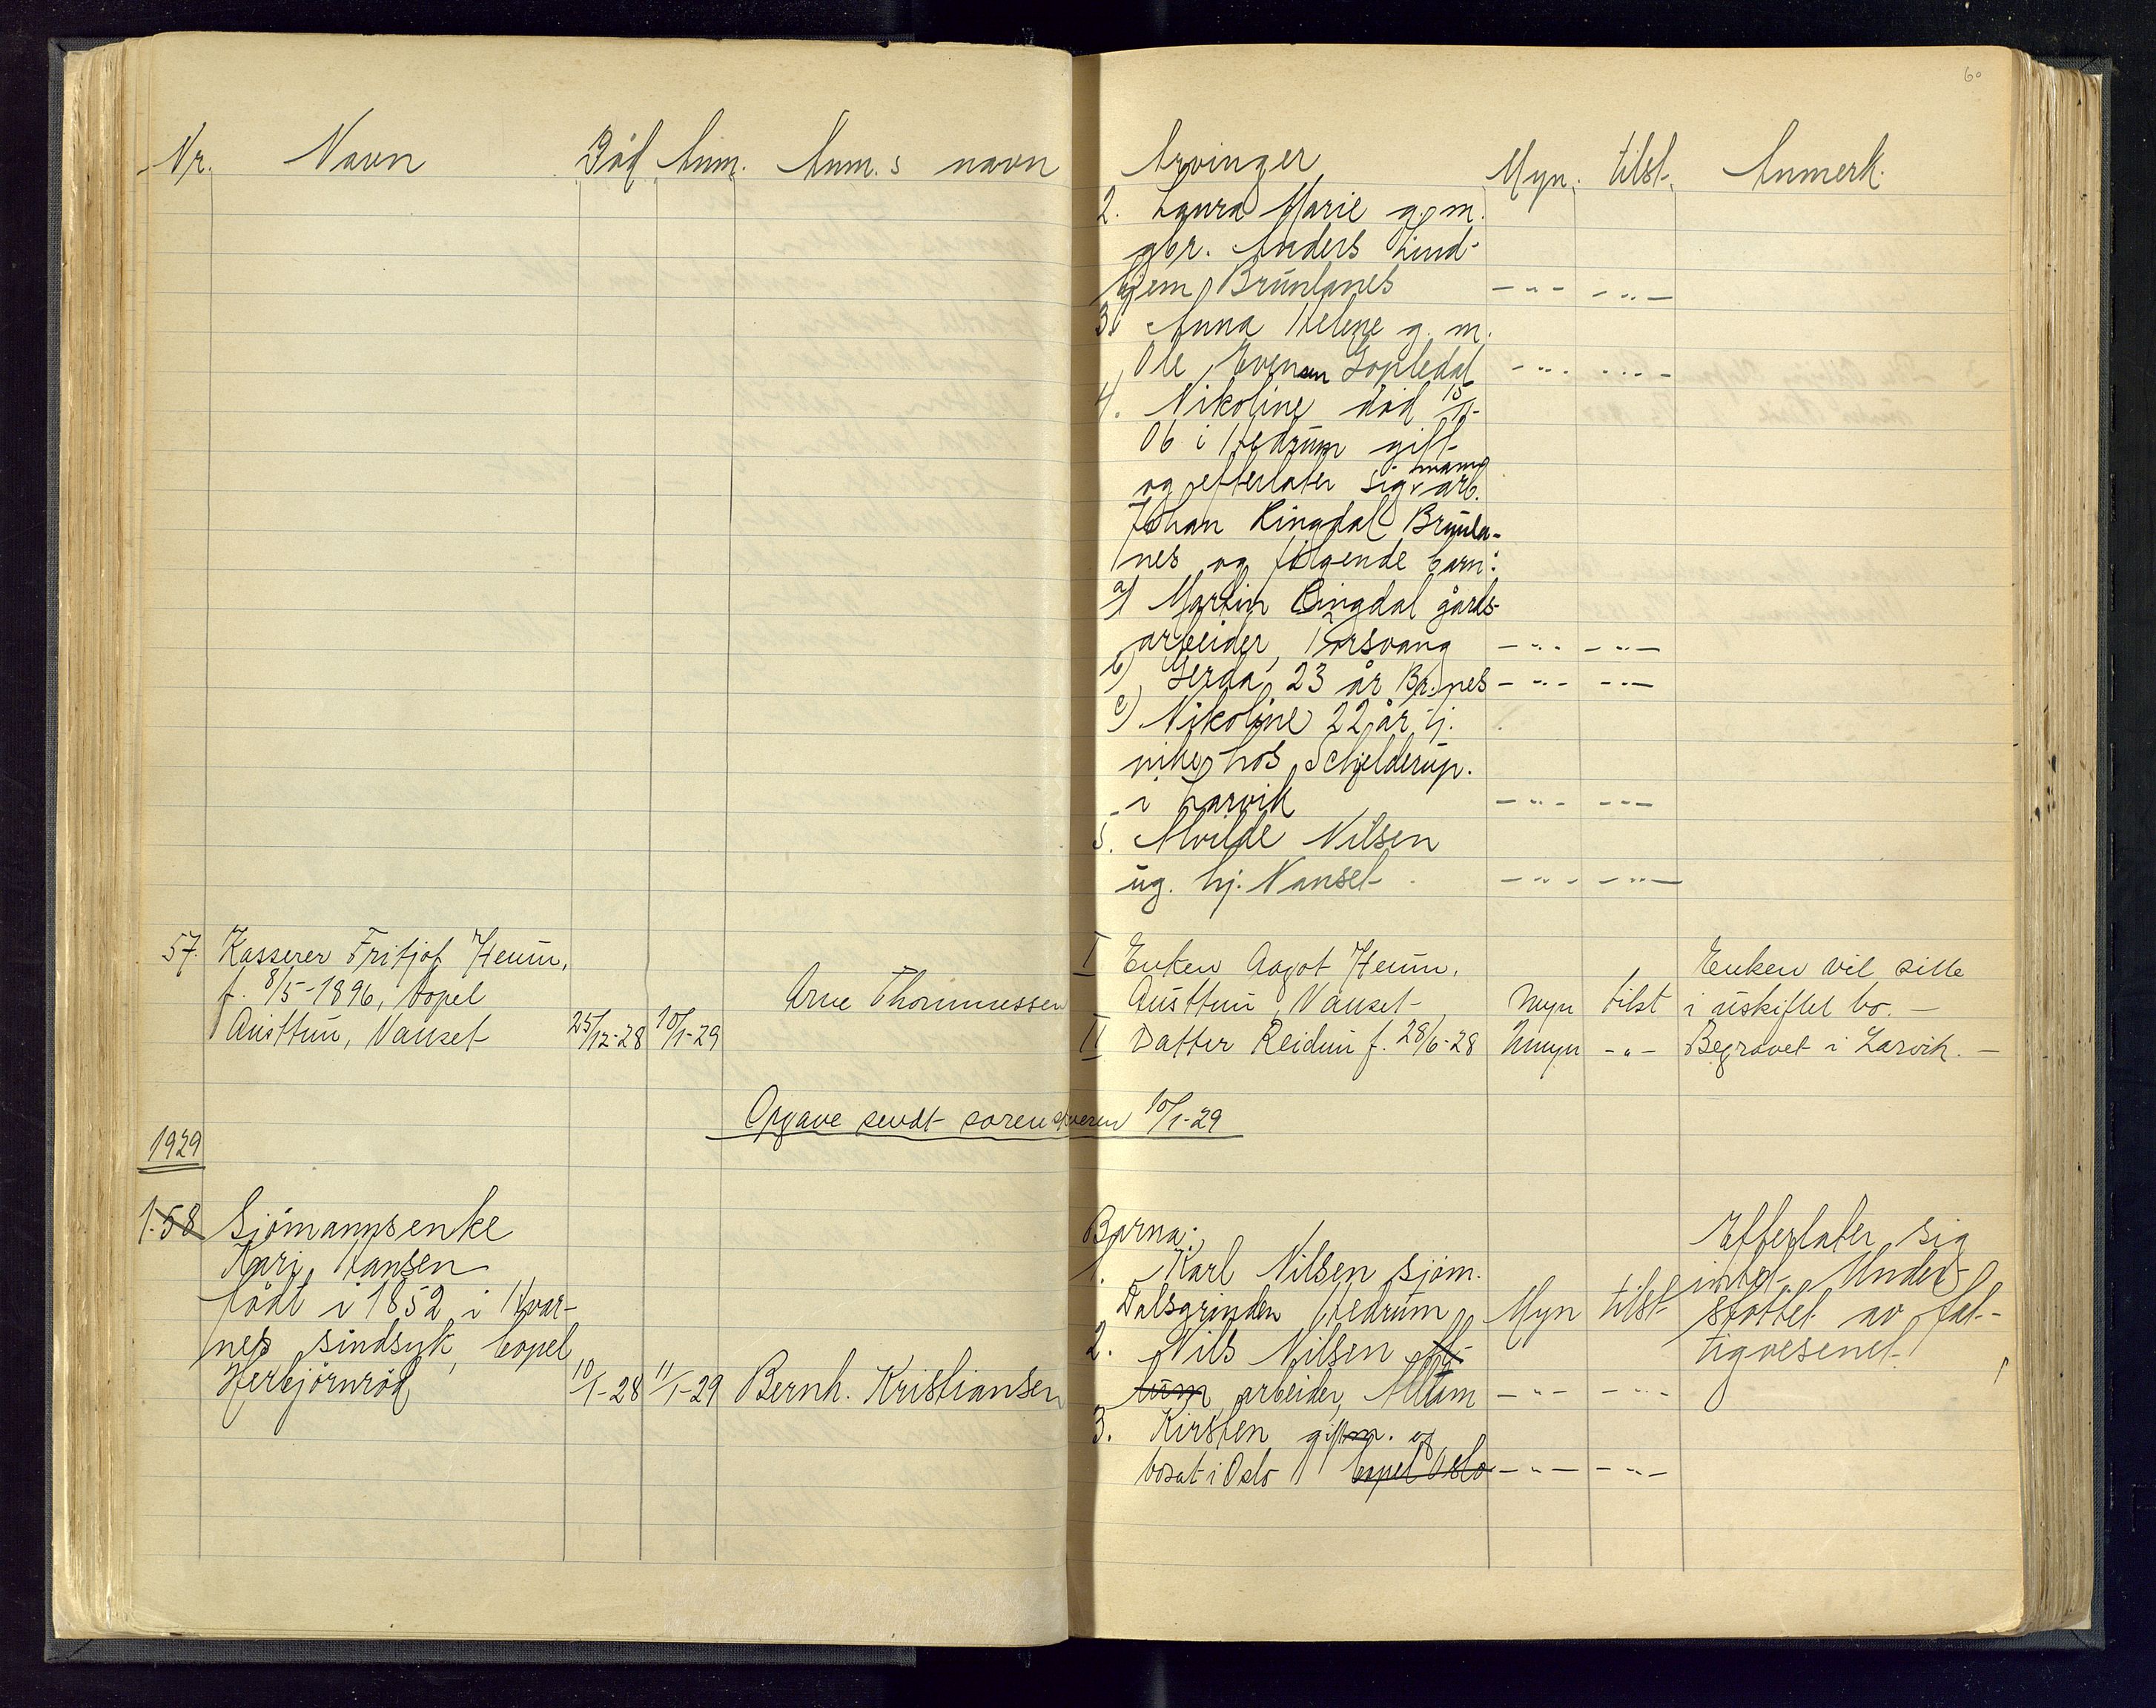 60
Nr. Navn Död Anm. Anm.s navn
Arvinger Myn. tilst. Anmerk.
2. Laura Marie g. m.
gbr. Anders Lind-
hjem, Brunlanes - " - - " -
3. Anna Helene g. m.
Ole Evensen Gopledal - " - - " -
4. Nikoline död 15/11-
06 i Hedrum gift
og efterlater sig mann
arb.
Johan Ringdal Brunla-
nes og følgende barn:
a) Martin Ringdal gårds-
arbeider, Korsvang - " - - " -
b) Gerda, 23 år Br.nes - " - - " -
c) Nikoline 22 år tj.
pike hos Schjelderup.
i Larvik - " - - " -
5. Alvilde Nilsen
ug. hj. Nanset - " - - " -
57. Kasserer Fritjof Heum,
f. 8/5-1896, bopel
Austtun, Nanset 25/12-28 10/1-29
Arne Thommessen
I Enken Aagot Heum, Enken vil sitte
Austtun, Nanset Myn tilst i uskiftet bo. -
II Datter Reidun f. 28/6-28 Umyn - " - Begravet i Larvik. -
Opgave sendt sorenskriveren 10/1-29
1929
1. 58 Sjömannsenke
Kari Hansen
födt i 1852 i Kvar-
nes sindsyk, bopel
Herbjörnröd 10/1-28 11/1-29 Bernh. Kristiansen
Barna: Efterlater sig
1. Karl Nilsen sjöm. intet. Under-
Dalsgrinden Hedrum Myn tilst støttet av fat-
2. Nils Nilsen tigvesenet.
arbeider, - " - - " -
3. Kirsten gift m. og
bosat i Oslo bopel Oslo - " - - " -